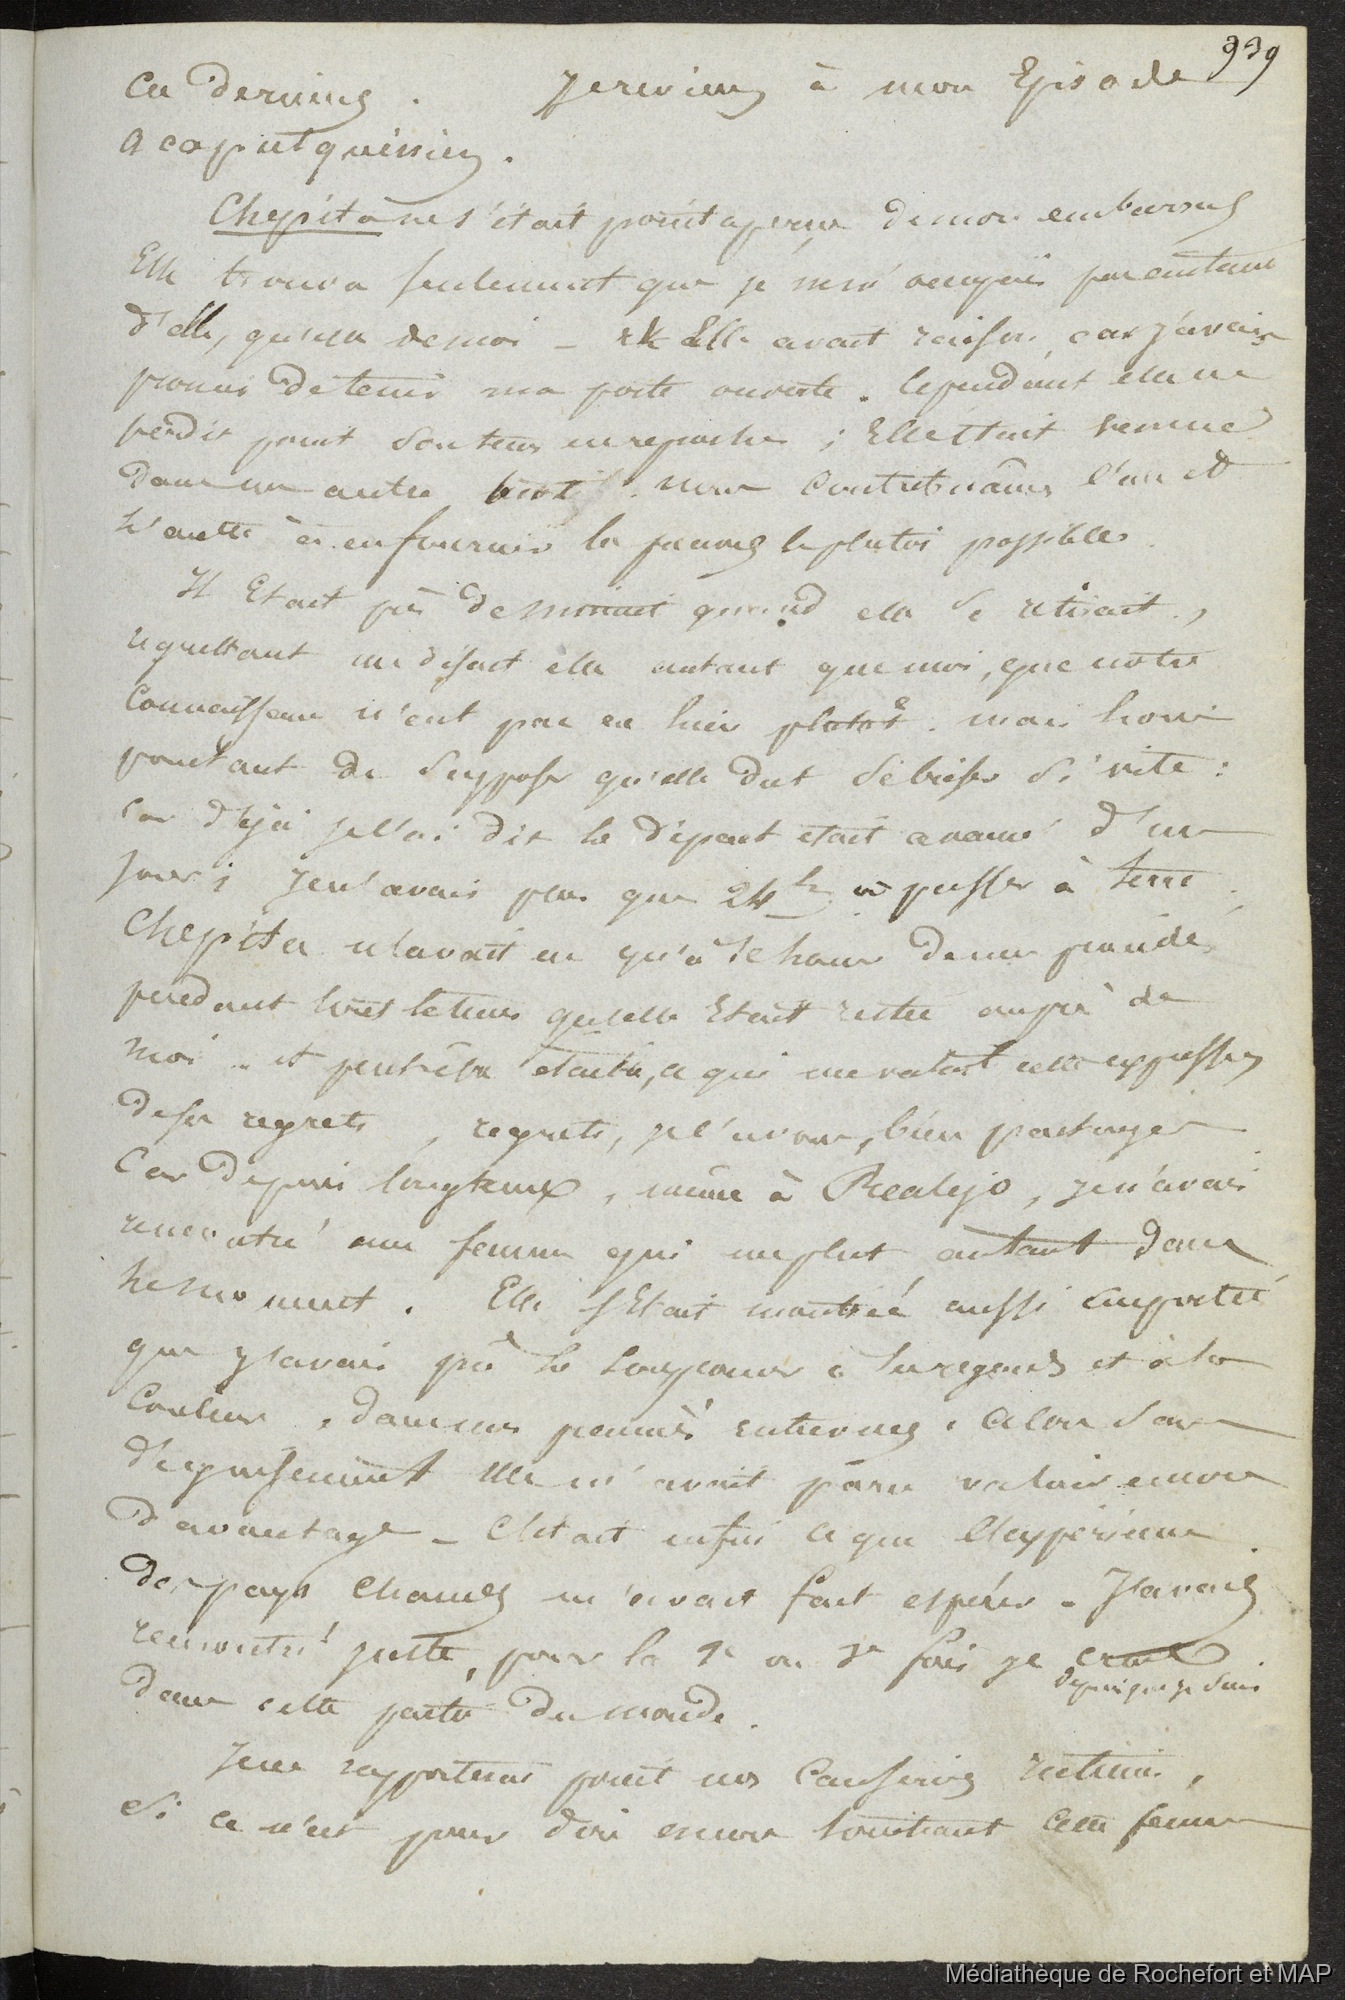 939
Ces derniers. Je reviens à mon Episode
acapulquéinien.
Chepita ne s'était point aperçu de mon embarras
Elle trouva seulement que je m'occupais pas autant
d'elle, qu'elle de moi _ Elle avait raison, car j'avais
promis de tenir ma porte ouverte. Cependant elle ne
perdit point son tems en reproches ; Elle était venue
dans un autre but. nous contribuâmes l'un et
l'autre à en fournir les preuves le plutôt possible.
Il Etait près de minuit quand elle se retirait,
regrettant me disait elle autant que moi, que notre
connaissance n'eut pas eu lieu plutôt. mais
pourtant de supposer qu'elle dut se briser si vite :
car déjà je l'ai dit le départ était avancé d'un
jour ; Je n'avais plus que 24h à passer à terre.
Chepita n'avait eu qu'à se louer de mes procédés
pendant tout le tems qu'elle Etait restée auprès de
moi _ et peut être était-ce, ce qui me valait cette expression
de ses regrets, regrets, je l'avoue, bien partagés
Car depuis longtemps, même à Realejo, je n'avais
rencontré une femme qui me plut autant dans
le moment. Elle s'Etait montrée aussi emportée
que j'avais pu le soupçonner à ses regards et à la
couleur, dans nos premières entrevues.
d'épuisement Elle m'avait paru valoir encore
davantage _ C'était enfin ce que l'expérience
des pays chauds m'avait fait espérer _ J'avais
rencontré juste, pour la 1e ou 2e fois je crois
depuis que je suis
dans cette partie du monde.
Je ne rapporterai point nos causeries intimes,
si ce n'est pour dire encore touchant cette femme
Médiathèque de Rochefort et MAP